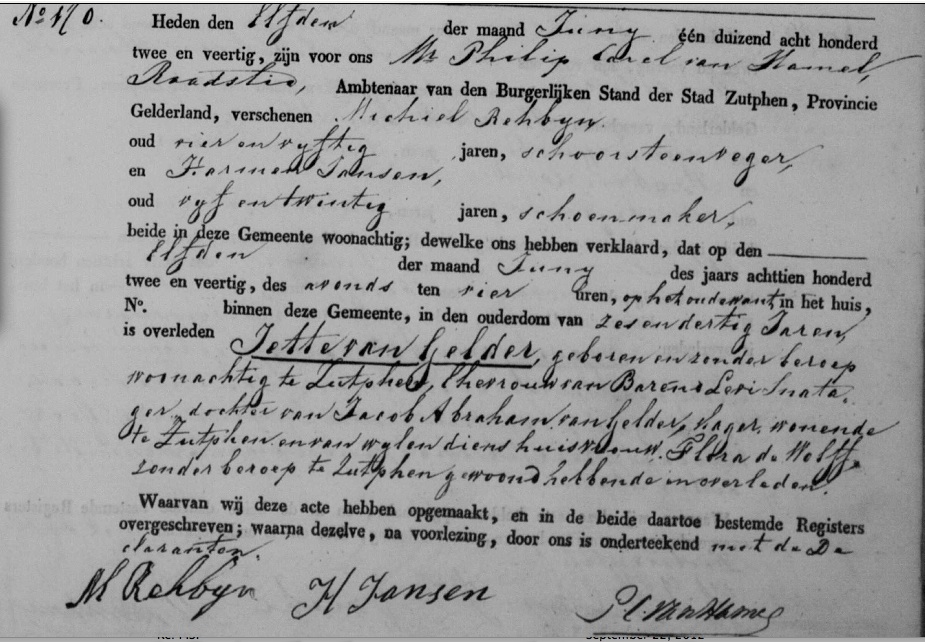 No. 170.
Heden den Elfden der maand Juny één duizend acht honderd
twee en veertig, zijn voor ons Mr Philip Carel van Hamel,
Raadslid, Ambtenaar van den Burgerlijken Stand der Stad Zutphen, Provincie
Gelderland, verschenen Michiel Rehbyn
oud vier en vyftig jaren, schoorsteenveger,
en Harmen Jansen,
oud vyf en twintig jaren, schoenmaker,
beide in deze Gemeente woonachtig; dewelke ons hebben verklaard, dat op den
Elfden der maand Juny des jaars achttien honderd
twee en veertig, des avonds ten vier uren, op het oudewant, in het huis,
No. binnen deze Gemeente, in den ouderdom van zesendertig Jaren,
is overleden Jette van Gelder, geboren en zonder beroep
woonachtig te Zutphen, Ehevrouw van Barend Levi
dochter van Jacob Abraham van Gelder, slager, wonende
te Zutphen, en van wylen diens huisvrouw Flora de Wolff,
zonder beroep te Zutphen gewoond hebbende en overleden.
Waarvan wij deze acte hebben opgemaakt, en in de beide daartoe bestemde Registers
overgeschreven; waarna dezelve, na voorlezing, door ons is onderteekend met de De
claranten.
M Rehbyn H Jansen P C Van Hamel
September 22, 2012